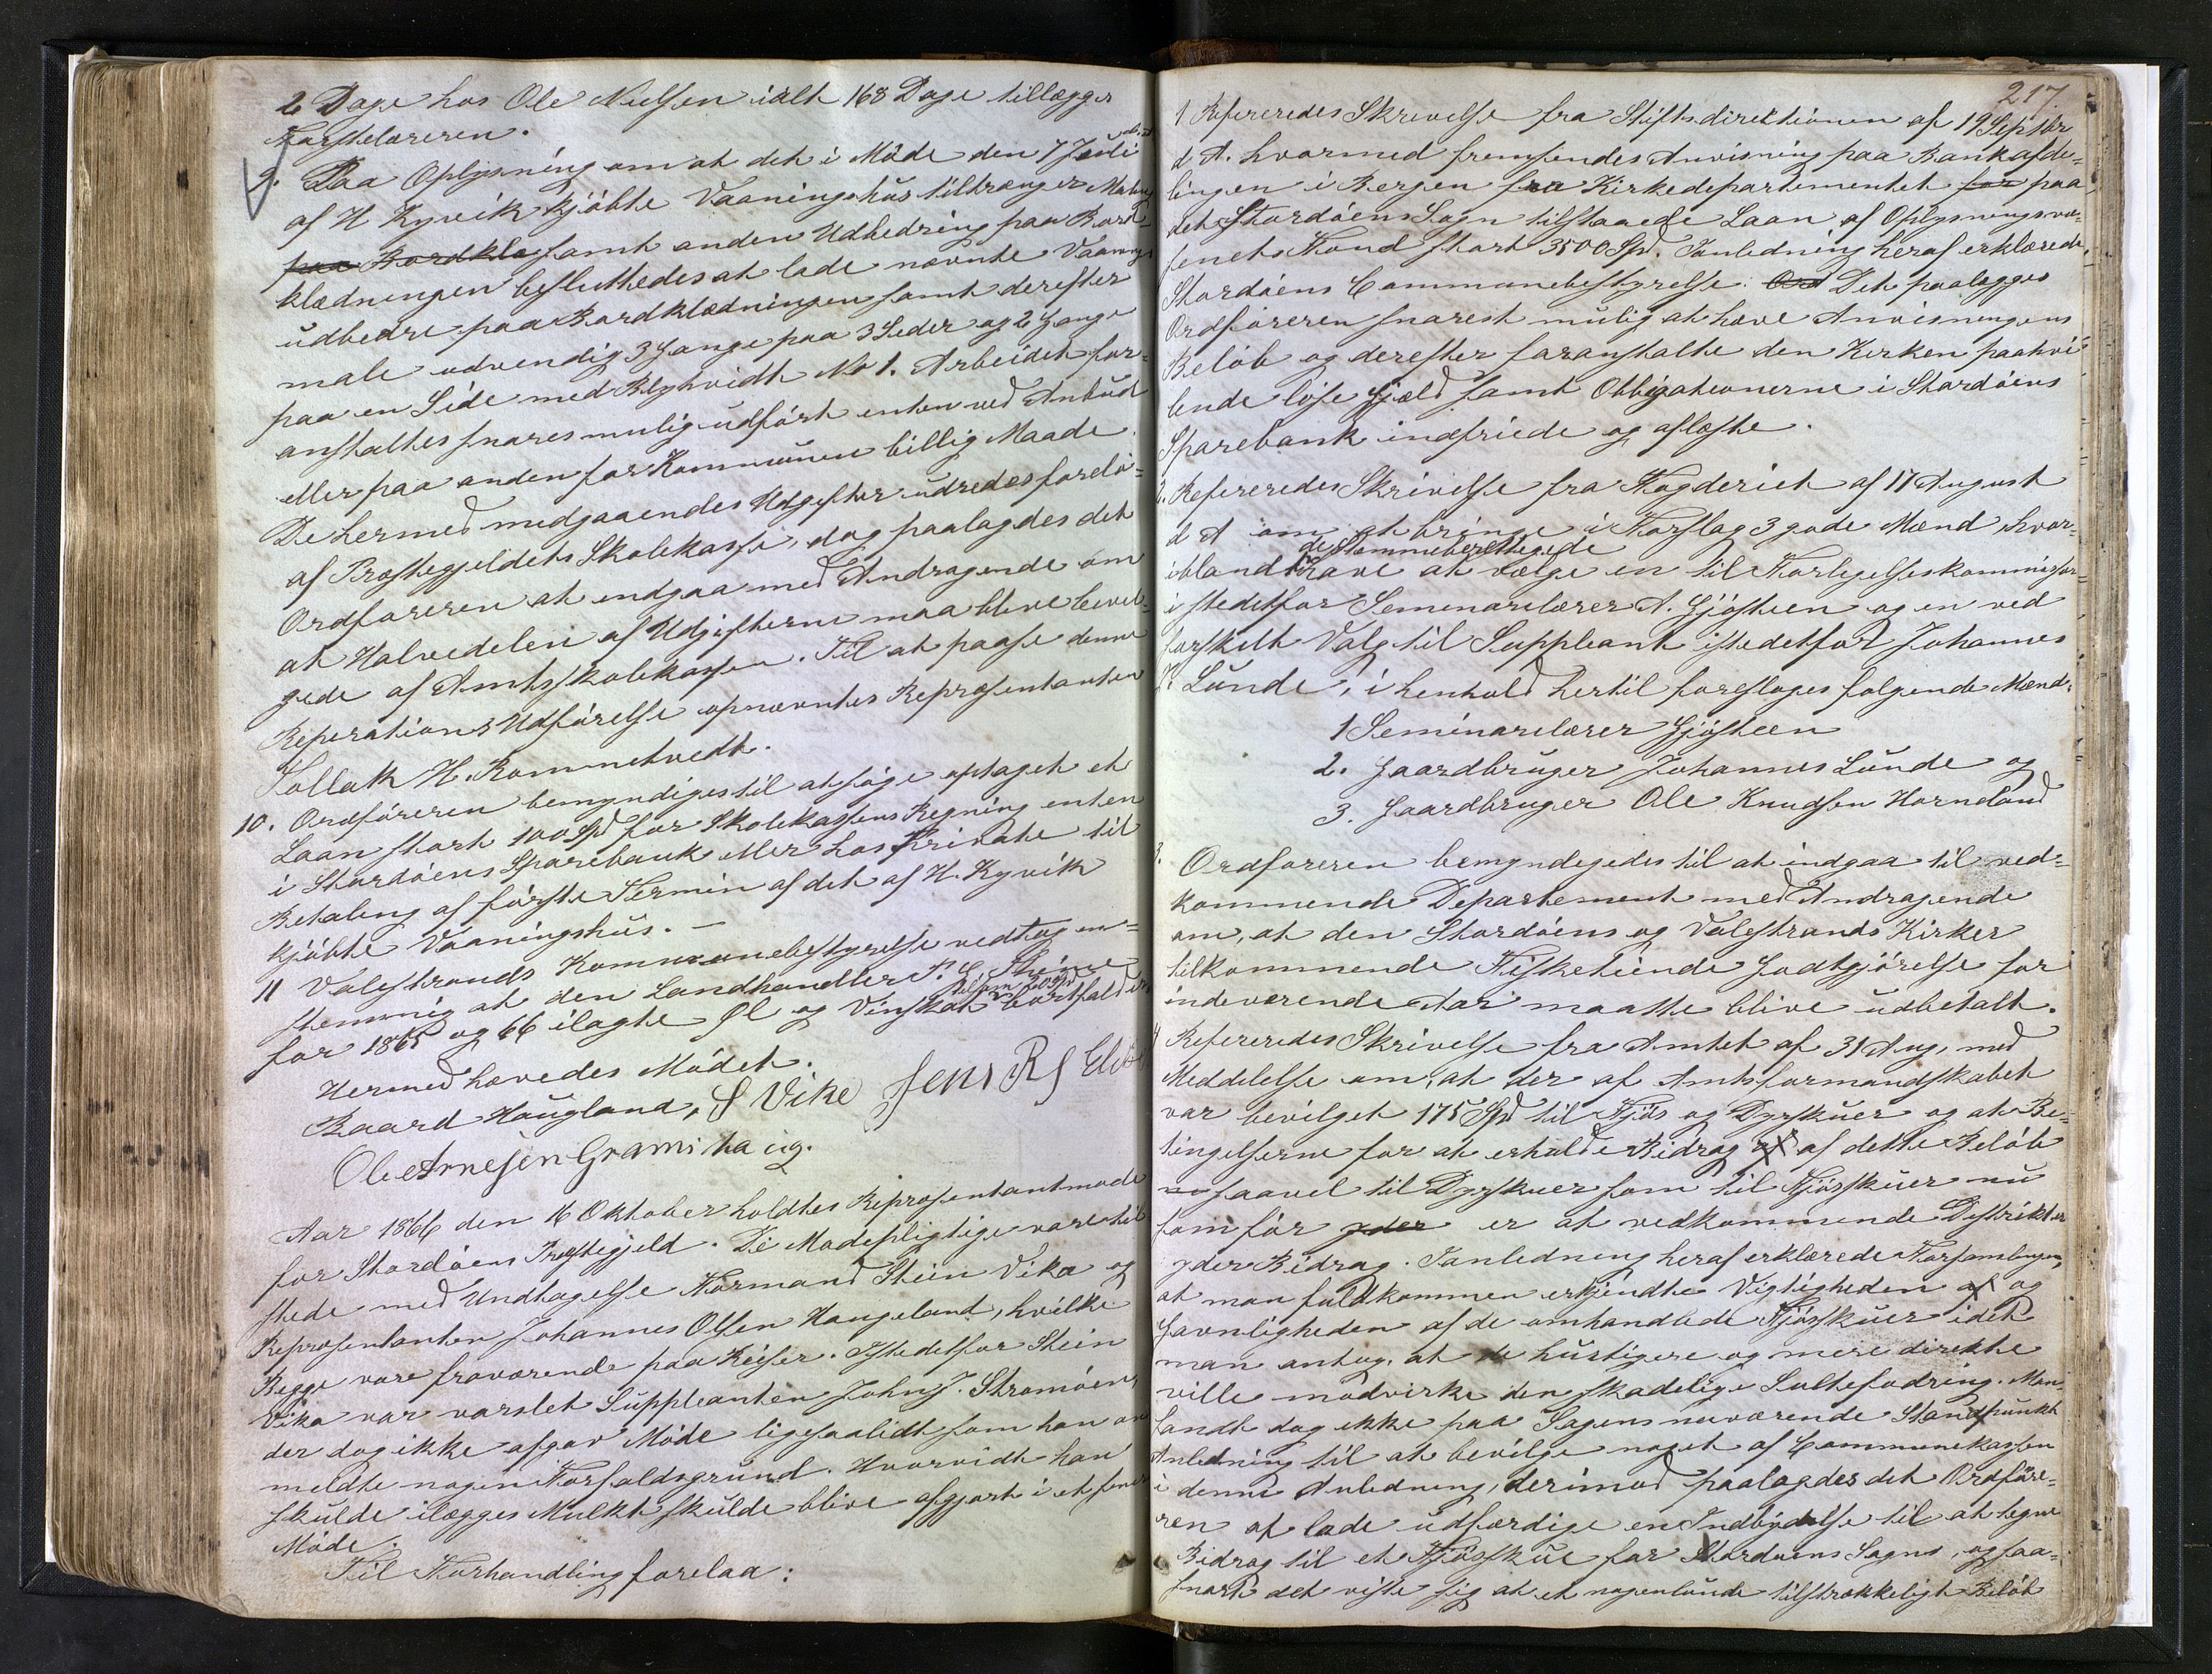 2 Dage hos Ole Nielsen ialt 168 Dage tillægges
Førstelæreren.
9. Paa Oplysning om at det i Møde den 7 Juli
af H Kyvik kjøbte Vaaningshus tiltrænger Maling
paa Bordklæ samt anden Udbedring paa Bord-
klædningen besluttedes at lade nævnte Vaanings
udbedre paa Bordklædningen samt derefter
male udvendig 3 Gange paa 3 Sider og 2 Gange
paa en Side med Blyhvidt No 1. Arbeidet for-
anstaltes snares mulig udført enten ved Anbud
eller paa anden for Kommunen billig Maade.
De hermed medgaaendes Udgifter udredes forelø-
af Præstegjeldets Skolekasse, dog paalagdes det
Ordføreren at indgaa med Andragende om
at Halvedelen af Udgifterne maa blive bevil-
gede af Amtsskolekassen. Til at paase denne
Reperations Udførelse opnævntes Repræsentanten
Tollak H. Rommetvedt.
10. Ordføreren bemyndiges til at søge optaget et
Laan stort 100 Spd for Skolekassens Regning enten
i Stordøens Sparebank eller hos Private til
Betaling af første Termin af det af H. Kyvik
kjøbte Vaaningshus. –
11 Valestrands Kommunebestyrelse vedtog en-
stemmig at den Landhandler P. G. Steine
for 1865 og 66 ilagte Øl og Vinskat bortfalder
Hermed hævedes Mødet.
Baard Haugland, S Vike Jens R
Ole Arnesen Gramshaug.
Aar 1866 den 16 Oktober holdtes Repræsentantmøde
for Stordøens Præstegjeld. De Mødepligtige vare til-
stede med Undtagelse Formand Stein Vika og
Repræsentanten Johannes Olsen Haugeland, hvilke
Begge vare fraværende paa Reiser. Istedetfor Stein
Vika var varslet Suppleanten John J. Strømøen,
der dog ikke afgav Møde ligesaalidt som han an
meldte nogen Forfaldsgrund. Hvorvidt han
skulde ilægges Mulkt skulde blive afgjort i et senere
Møde.
Til Forhandling forelaa:
217.
1 Refereredes Skrivelse fra Stiftsdirektionen af 19 Septbr
d A. hvormed fremsendes Anvisning paa Bankafde-
lingen i Bergen fra Kirkedepartementet for paa
det Stordøens Sogn tilstaaede Laan af Oplysningsvæ-
senets Fond stort 3500 Spd. Ianledning heraf erklærede
Stordøens Communebestyrelse: Ord Det paalægges
Ordføreren snarest mulig at hæve Anvisningens
Beløb og derefter foranstalte den Kirken paahvi-
lende løse Gjæld samt Obligationerne i Stordøens
Sparebank indfriede og aflæste.
2. Refereredes Skrivelse fra Fogderiet af 17 August
d A om at bringe i Forslag 3 gode Mænd, hvor-
de Stemmeberettigede
iblandt have at vælge en til Forligelseskommissær
istedetfor Seminarlærer A. Gjøsteen og en ved
særskilt Valg til Suppleant istedetfor Johannes
J. Lunde, i henhold hertil foresloges følgende Mænd:
1 Seminarelærer Gjøsteen
2. Gaardbruger Johannes Lunde og
3. Gaardbruger Ole Knudsen Horneland
3. Ordføreren bemyndigedes til at indgaa til ved-
kommende Departement med Andragende
om, at den Stordøens og Valestrands Kirker
tilkommende Fisketiende Godtgjørelse for
indeværende Aar maatte blive udbetalt.
4 Refereredes Skrivelse fra Amtet af 31 Aug. med
Meddelelse om, at der af Amtsformandskabet
var bevilget 175 Spd til Fjøs og Dyrskuer og at Be-
tingelserne for at erholde Bidrag af dette Beløb
saavel til Dyrskuer som til Fjøsskuer nu
som før yder er at vedkommende Distrikter
yder Bidrag. Ianledning heraf erklærede Forsamlingen,
at man fuldkommen erkjendte Vigtigheden af og
Gavnligheden af de omhandlede Fjøsskuer idet
man antog, at de hurtigere og mere direkte
ville modvirke den skadelige Sultefodring. Man
fandt dog ikke paa Sagens nuværende Standpunkt
Anledning til at bevilge noget af Communekassen
i denne Anledning, derimod paalagdes det Ordføre-
ren at lade udfærdige en Indbydelse til at tegne
Bidrag til et Fjøsskue for Stordøens Sogns, og saa-
snart det viste sig at et nogenlunde tilstrækkeligt Beløb